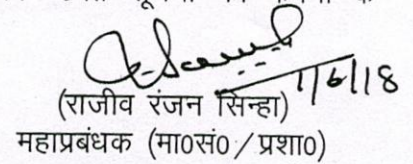 1/6/18
(राजीव रंजन सिन्हा)
महाप्रबंधक (मा०सं०/प्रशा०)